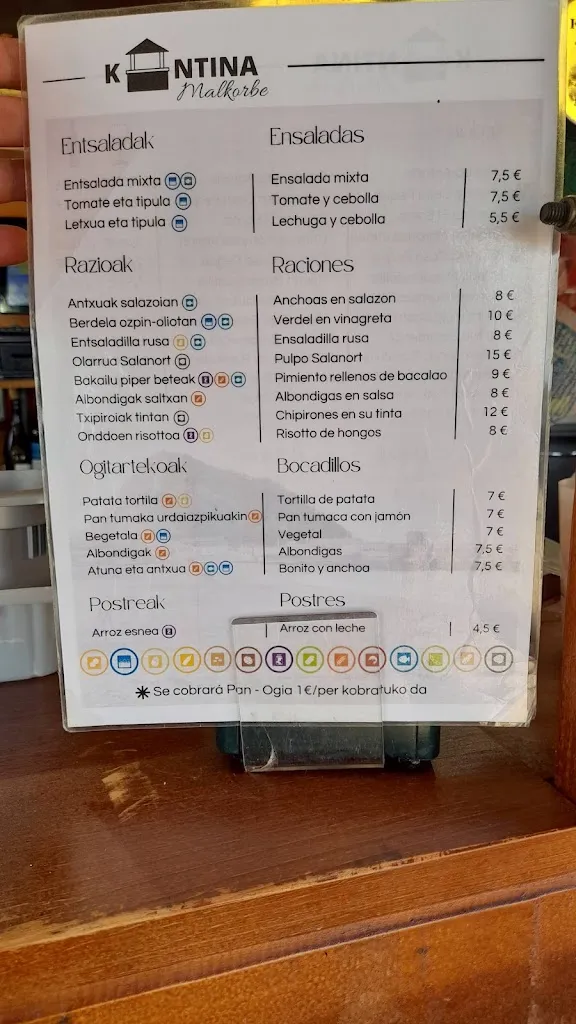 K NTINA
Malkorbe
Entsaladak Ensaladas
Entsalada mixta Ensalada mixta 7,5 €
Tomate eta tipula Tomate y cebolla 7,5 €
Letxua eta tipula Lechuga y cebolla 5,5 €
Razioak Raciones
Antxuak salazoian Anchoas en salazon 8 €
Berdela ozpin-oliotan Verdel en vinagreta 10 €
Entsaladilla rusa Ensaladilla rusa 8 €
Olarrua Salanort Pulpo Salanort 15 €
Bakailu piper beteak Pimiento rellenos de bacalao 9 €
Albondigak saltxan Albondigas en salsa 8 €
Txipiroiak tintan Chipirones en su tinta 12 €
Onddoen risottoa Risotto de hongos 8 €
Ogitartekoak Bocadillos
Patata tortila Tortilla de patata 7 €
Pan tumaka urdaiazpikuakin Pan tumaca con jamón 7 €
Begetala Vegetal 7 €
Albondigak Albondigas 7,5 €
Atuna eta antxua Bonito y anchoa 7,5 €
Postreak Postres
Arroz esnea Arroz con leche 4,5 €
Se cobrará Pan - Ogia 1€/per kobratuko da